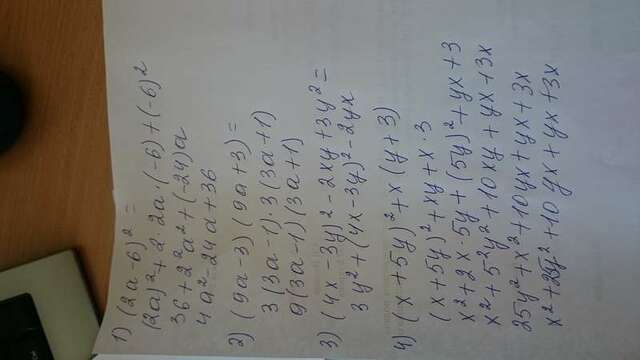 1) (2a-6)² =
(2a)²+2·2a·(-6)+(-6)²
36+2²a²+(-24)a
4a²-24a+36
2) (9a-3)(9a+3)=
3(3a-1)·3(3a+1)
9(3a-1)(3a+1)
3) (4x-3y)²-2xy+3y²=
3y²+(4x-3y)²-2yx
4) (x+5y)²+x(y+3)
(x+5y)²+xy+x·3
x²+2x·5y+(5y)²+yx+3
x²+5²y²+10xy+yx+3x
25y²+x²+10yx+yx+3x
x²+25y²+10yx+yx+3x